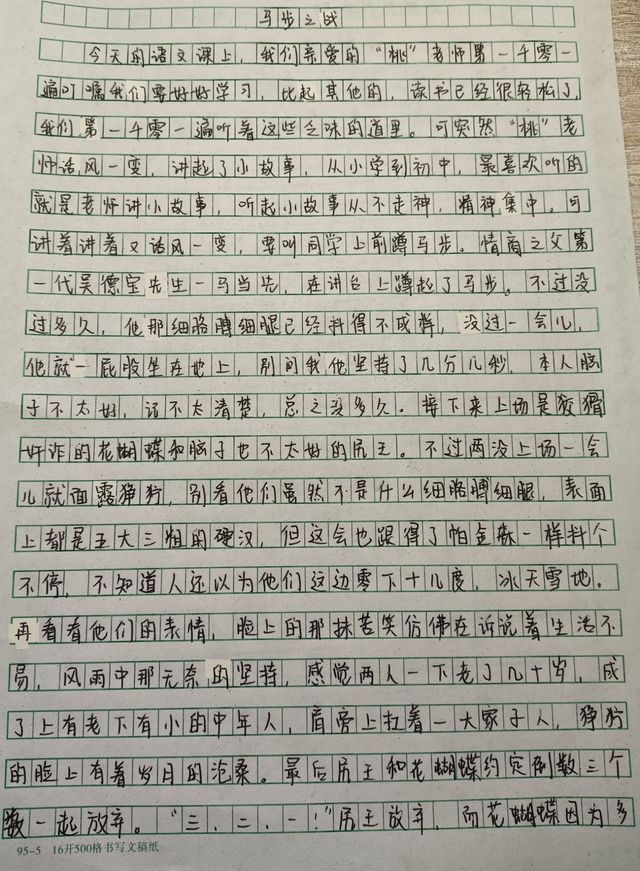 马步之战
今天的语文课上，我们亲爱的“桃”老师第一千零一
遍叮嘱我们要好好学习，比起其他的，读书已经很轻松了，
我们第一千零一遍听着这些乏味的道里。可突然“桃”老
师话风一变，讲起了小故事，从小学到初中，最喜欢听的
就是老师讲小故事，听起小故事从不走神，精神集中。可
讲着讲着又话风一变，要叫同学上前蹲马步。情商之父第
一代吴德宝先生一马当先，在讲台上蹲起了马步。不过没
过多久，他那细胳膊细腿已经抖得不成样，没过一会儿，
他就一屁股坐在地上，别问我他坚持了几分几秒，本人脑
子不太好，记不太清楚，总之没多久。接下来上场是狡猾
奸诈的花蝴蝶和脑子也不太好的尻王。不过两没上场一会
儿就面露狰狞，别看他们虽然不是什么细胳膊细腿，表面
上都是五大三粗的硬汉，但这会也跟得了帕金森一样抖个
不停，不知道人还以为他们这边零下十几度，冰天雪地。
再看看他们的表情，脸上的那抹苦笑仿佛在诉说着生活不
易，风雨中那无奈的坚持，感觉两人一下老了几十岁，成
了上有老下有小的中年人，肩旁上扛着一大家子人，狰狞
的脸上有着岁月的沧桑。最后尻王和花蝴蝶约定倒数三个
数一起放弃。“三、二、一！”尻王放弃，而花蝴蝶因为多
95-5 16开500格书写文稿纸